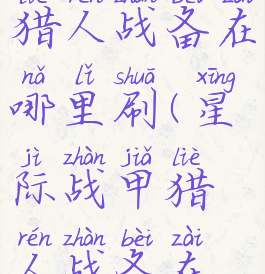 liè rén zhàn bèi zài
猎人战备在
nǎ lǐ shuā xīng
哪里刷(星
jì zhàn jiǎ liè
际战甲猎
rén zhàn bèi zài
人战备在